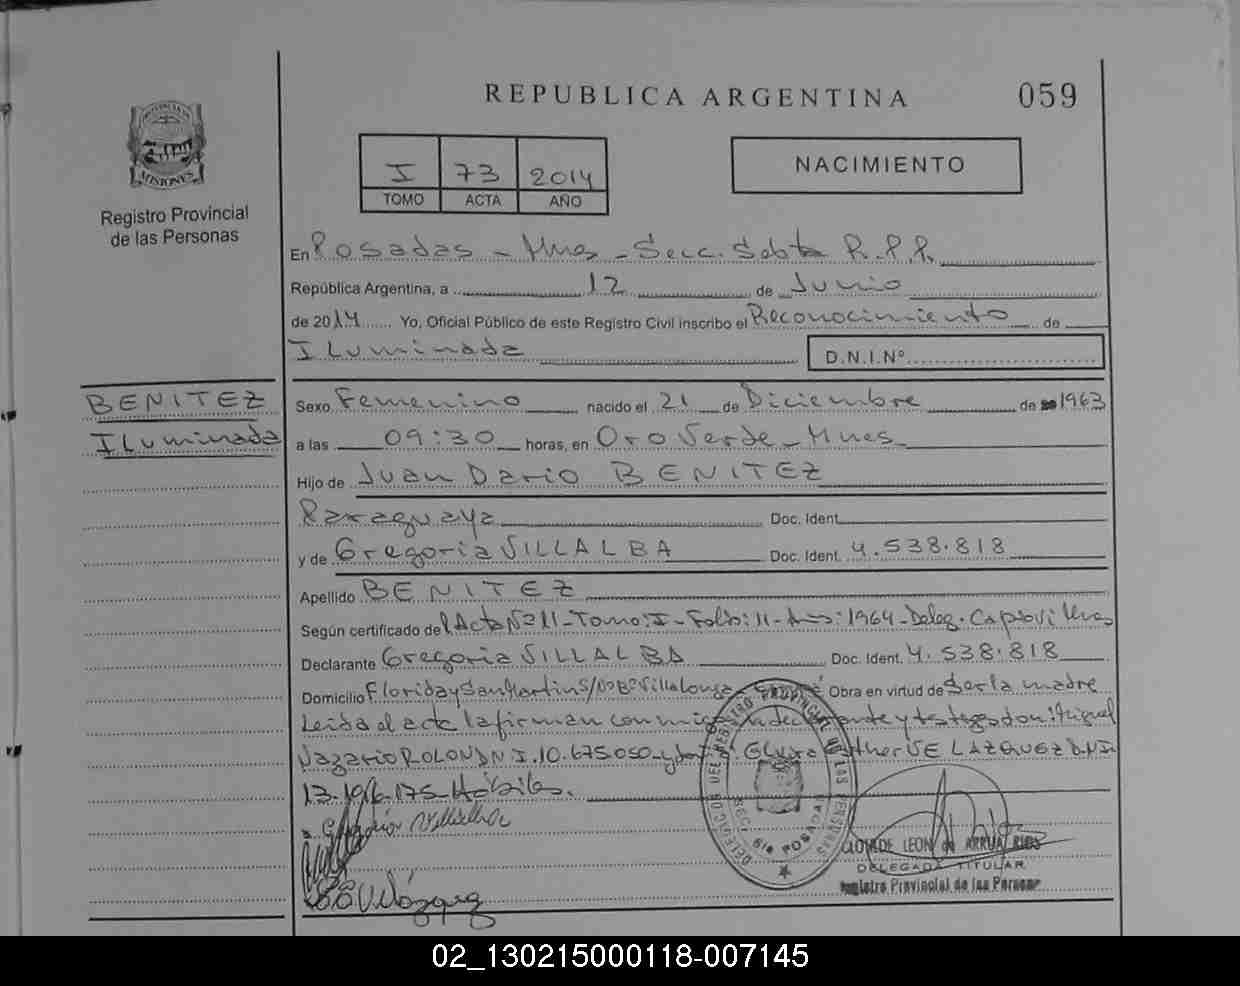 REPUBLICA ARGENTINA
059
PROVINCIA DE
MISIONES
Registro Provincial
de las Personas
I 73 2014
TOMO ACTA AÑO
NACIMIENTO
En Posadas - Mnes - Secc. Sexta R.P.P.
República Argentina, a 12 de Junio
de 2014 Yo, Oficial Público de este Registro Civil inscribo el Reconocimiento de
Iluminada D.N.I.Nº
BENITEZ
Iluminada
Sexo Femenino nacido el 21 de Diciembre de 1963
a las 09:30 horas, en Oro Verde - Mnes
Hijo de Juan Dario BENITEZ
Paraguaya Doc. Ident.
y de Gregoria VILLALBA Doc. Ident. 4.538.818
Apellido BENITEZ
Según certificado de Acta Nº 11 - Tomo: I - Folio: 11 - Año: 1964 - Deleg. Capiovi Mnes
Declarante Gregoria VILLALBA Doc. Ident. 4.538.818
Domicilio Florida y San Martin S/Nº Bº Villalonga Obra en virtud de Ser la madre
Leida el acta la firman conmigo la declarante y testigos don: Miguel
Nazario ROLON DNI. 10.675.050 - y doña: Elvira Esther VELAZQUEZ D.N.I
13.196.175 - Hábiles.
Gregoria Villalba
E E Velázquez
DELEGACION DEL REGISTRO PROVINCIAL DE LAS PERSONAS
SECC. 6ta POSADAS
CLOTILDE LEON de ARRUA RIOS
DELEGADA TITULAR
Registro Provincial de las Personas
02_130215000118-007145